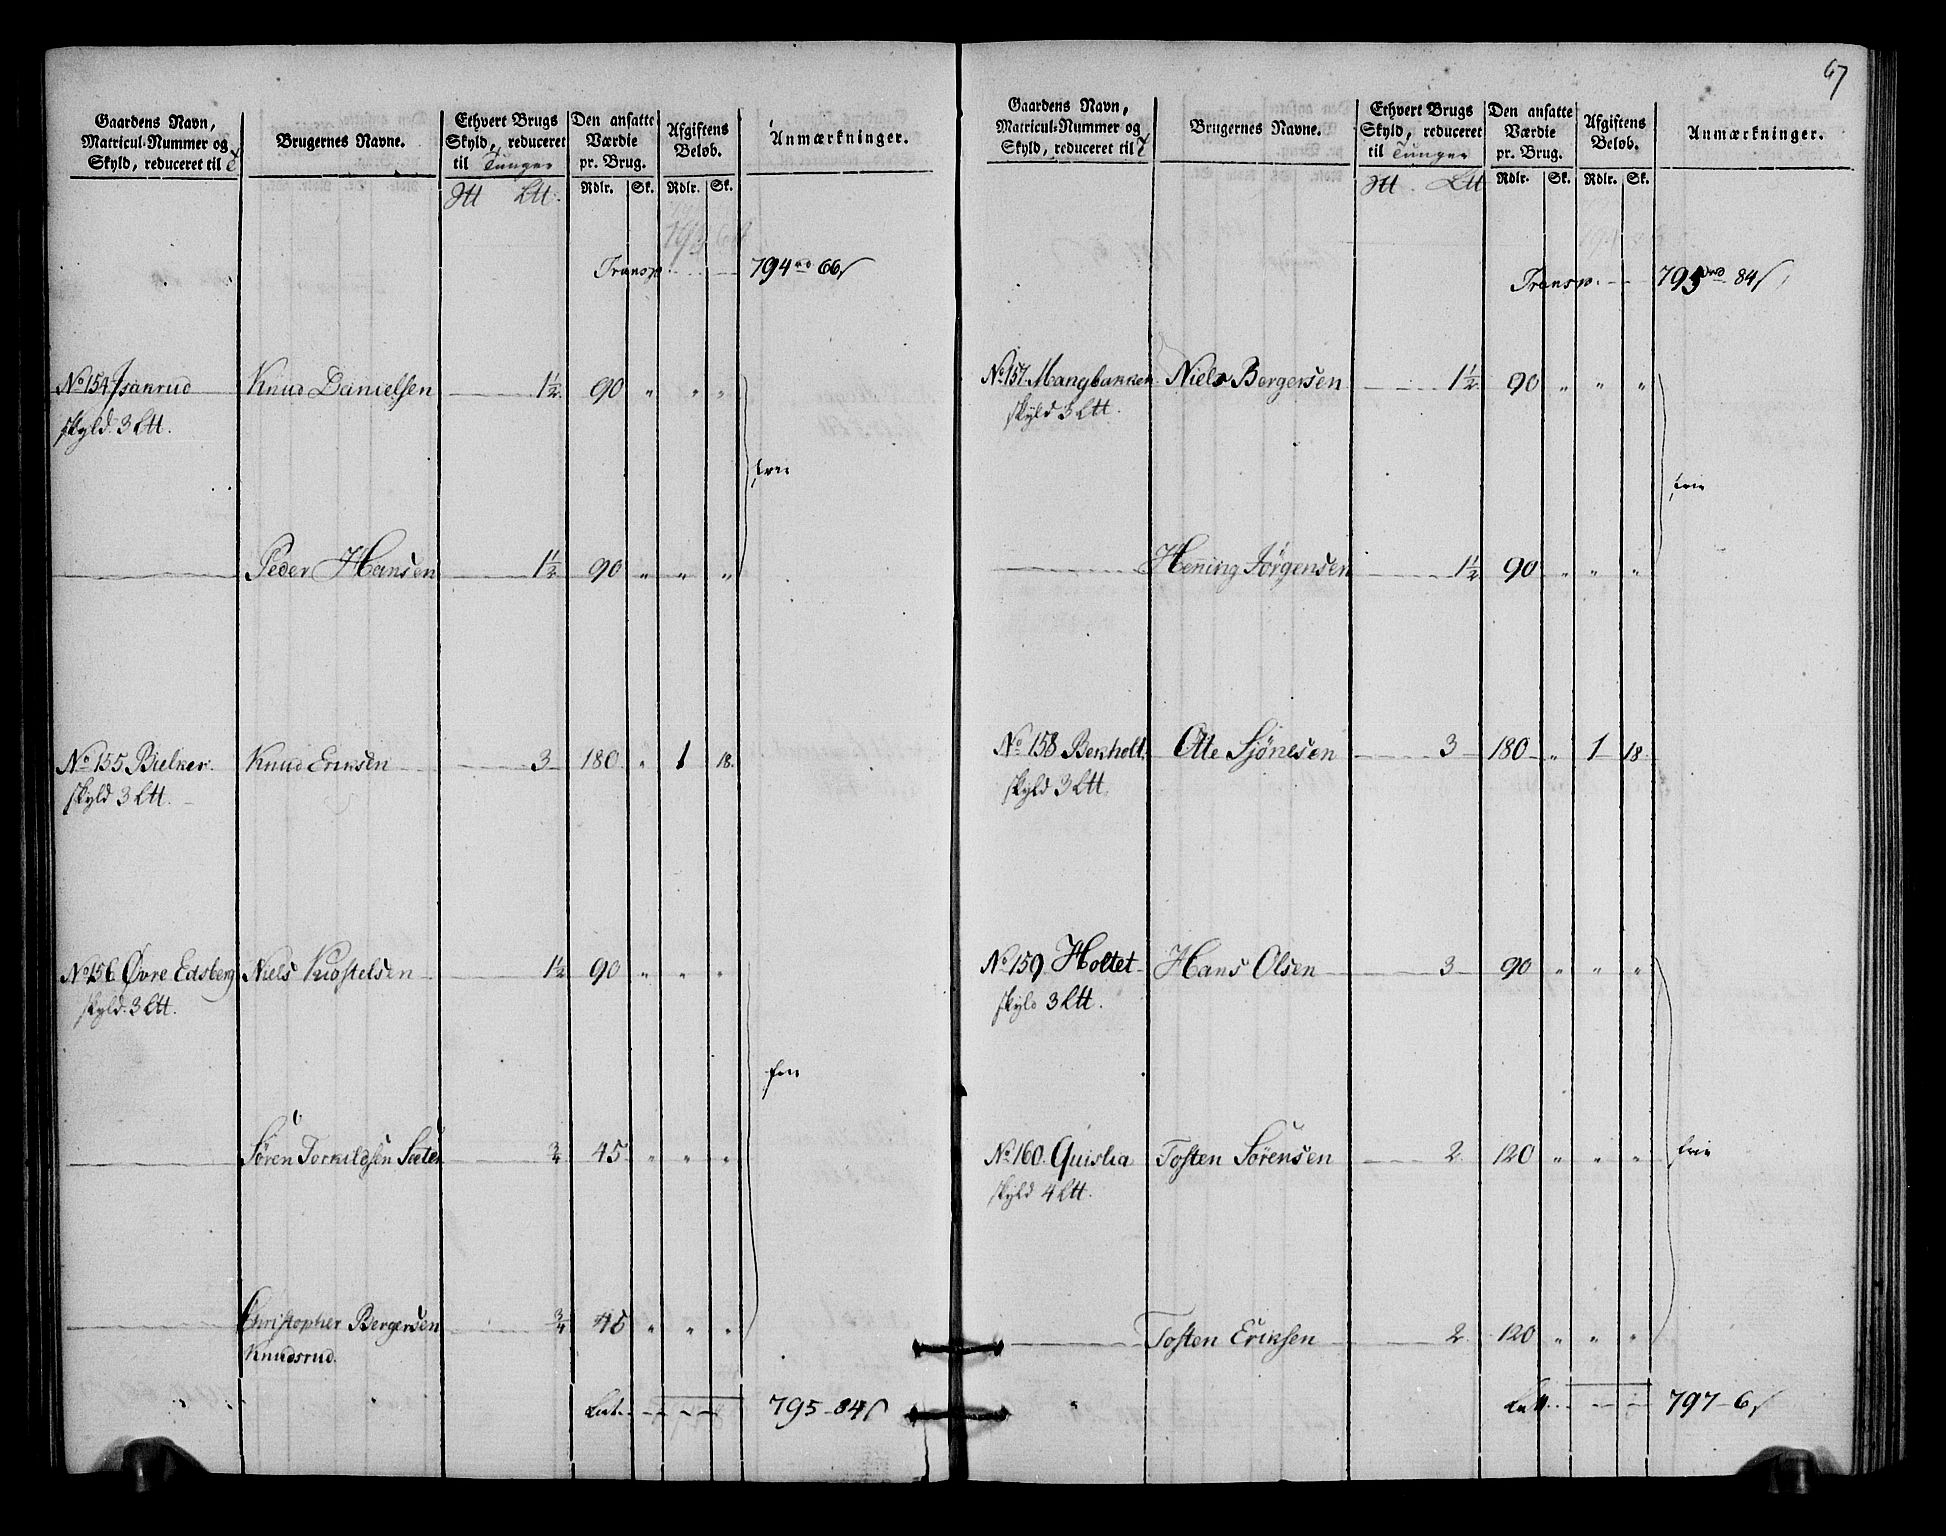 Gaardens Navn, Matricul-Nummer og Skyld, reduceret til
Brugernes Navne.
Ethvert Brugs Skyld, reduceret til Tunger
Den ansatte Værdie pr. Brug.
Afgiftens Beløb.
Anmærkninger.
Ltt.
Rdlr. Sk. Rdlr. Sk.
Transp. 794 rd 66 s
No 154 Isanrud Knud Danielsen 1½ 90 " " "
skyld 3 Ltt.
frie
Peder Hansen 1½ 90 " " "
No 155 Bielker Knud Eriksen 3 180 " 1 18.
skyld 3 Ltt.
No 156 Øvre Edsberg Niels 1½ 90 " " "
skyld. 3 Ltt.
frie
Søren Torkildsen Sæter ¾ 45 " " "
Christopher Bergersen ¾ 45 " " "
Knudsrud.
Lat. 795 - 84 s
67
Gaardens Navn, Matricul-Nummer og Skyld, reduceret til
Brugernes Navne.
Ethvert Brugs Skyld, reduceret til Tunger
Den ansatte Værdie pr. Brug.
Afgiftens Beløb.
Anmærkninger.
Ltt
Rdlr. Sk. Rdlr. Sk.
Transp. 795 rd 84 s
No 157 Mangbakken Niels Bergersen 1½ 90 " " "
skyld 3 Ltt.
frie
Hening Jørgensen 1½ 90 " " "
No 158 Bekholt Otte 3 180 " 1 18.
skyld 3 Ltt.
No 159 Holtet Hans Olsen 3 90 " " "
skyld 3 Ltt.
No 160. Quislia Tosten Sørensen 2 120 " " "
skyld 4 Ltt.
frie
Tosten Eriksen 2 120 " " "
Lat. 797 - 6 s